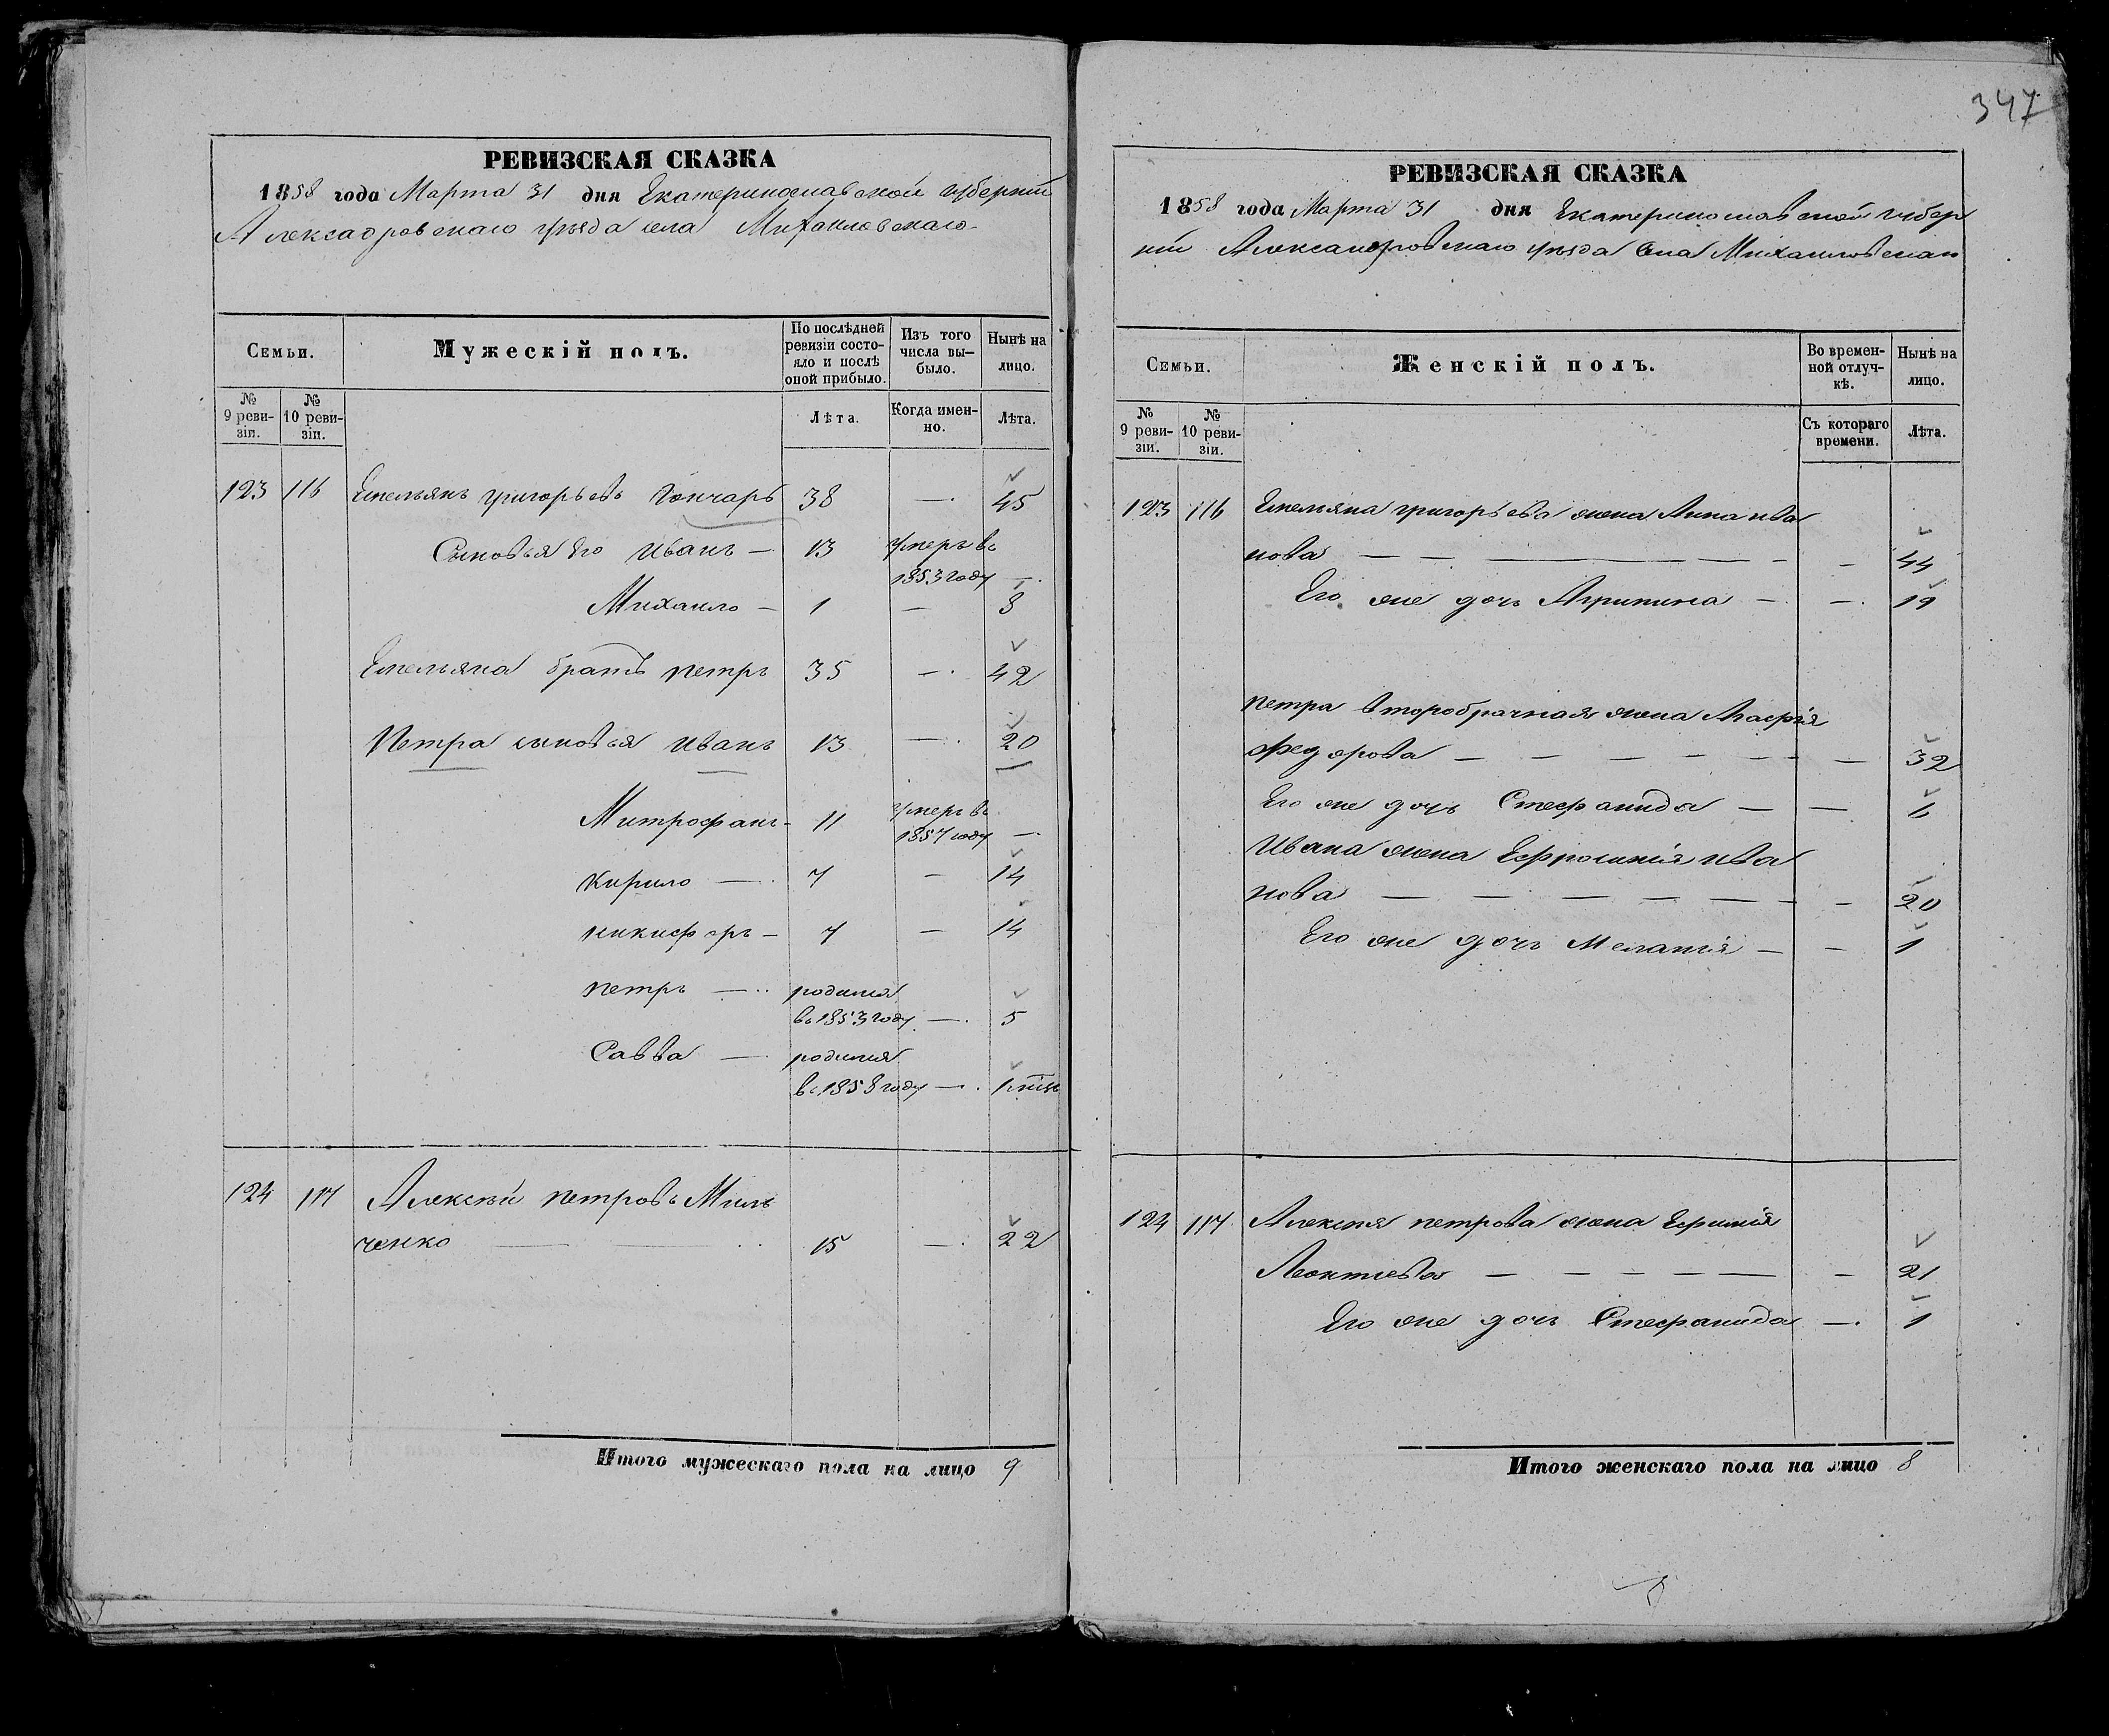 347
РЕВИЗСКАЯ СКАЗКА
1858 года Марта 31 дня Екатеринославской губерніи
Александровскаго уѣзда села Михайловскаго
Семьи.
Мужескій полъ.
По послѣдней ревизіи состояло и послѣ оной прибыло.
Изъ того числа выбыло.
Нынѣ на лицо.
№ 9 ревизіи.
№ 10 ревизіи.
Лѣта.
Когда именно.
Лѣта.
123 116 Емельянъ Григорьевъ Гончаръ 38 — 45
Сыновья Его Иванъ — 13 умеръ въ
1853 году —
Михаило — 1 — 8
Емельяна братъ Петръ 35 — 42
Петра сыновья Иванъ 13 — 20
1
Митрофанъ — 11 умеръ въ
1857 году —
Кирило — 7 — 14
Никифоръ — 7 — 14
Петръ — родился
въ 1853 году — 5
Савва — родился
въ 1858 году — 1 мѣсц
124 117 Алексѣй Петровъ Миль
ченко — — 15 — 22
Итого мужескаго пола на лицо 9
РЕВИЗСКАЯ СКАЗКА
1858 года Марта 31 дня Екатеринославской губер
ніи Александровскаго уѣзда села Михайловскаго
Семьи.
Женскій полъ.
Во временной отлучкѣ.
Нынѣ на лицо.
№ 9 ревизіи.
№ 10 ревизіи.
Съ котораго времени.
Лѣта.
123 116 Емельяна Григорьева жена Анна Ива
нова — — — — — 44
Его же дочь Агрипина — — 19
Петра второбрачная жена Агафія
Федорова — — — — — — 32
Его же дочь Стефанида — — 6
Ивана жена Ефросинія Ива
нова — — — — — — — 20
Его же дочь Меланія — — 1
124 117 Алексѣя Петрова жена Ефимія
Леонтіева — — — — — — 21
Его же дочь Стефанида — 1
Итого женскаго пола на лицо 8